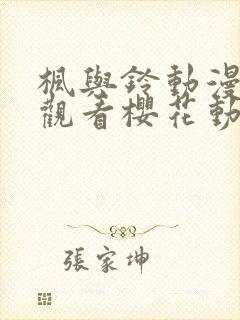 楓與鈴動漫
觀看櫻花動
張家坤